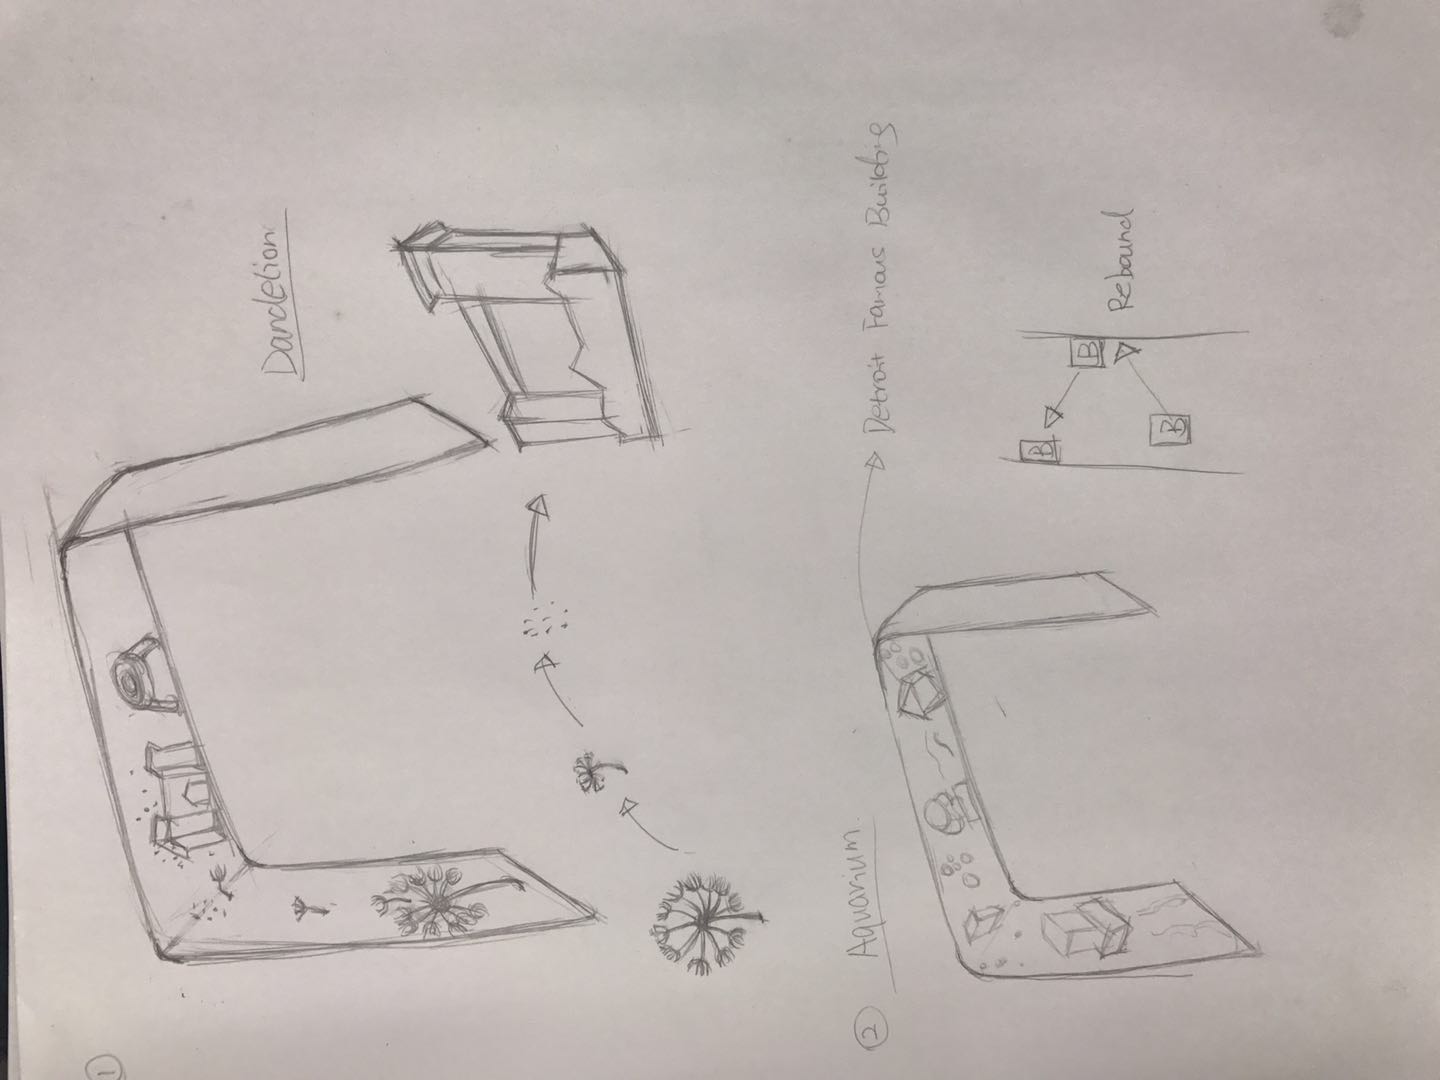 1
Dandelion
2
Aquarium.
Detroit Famous Building
B
B
B
Rebound